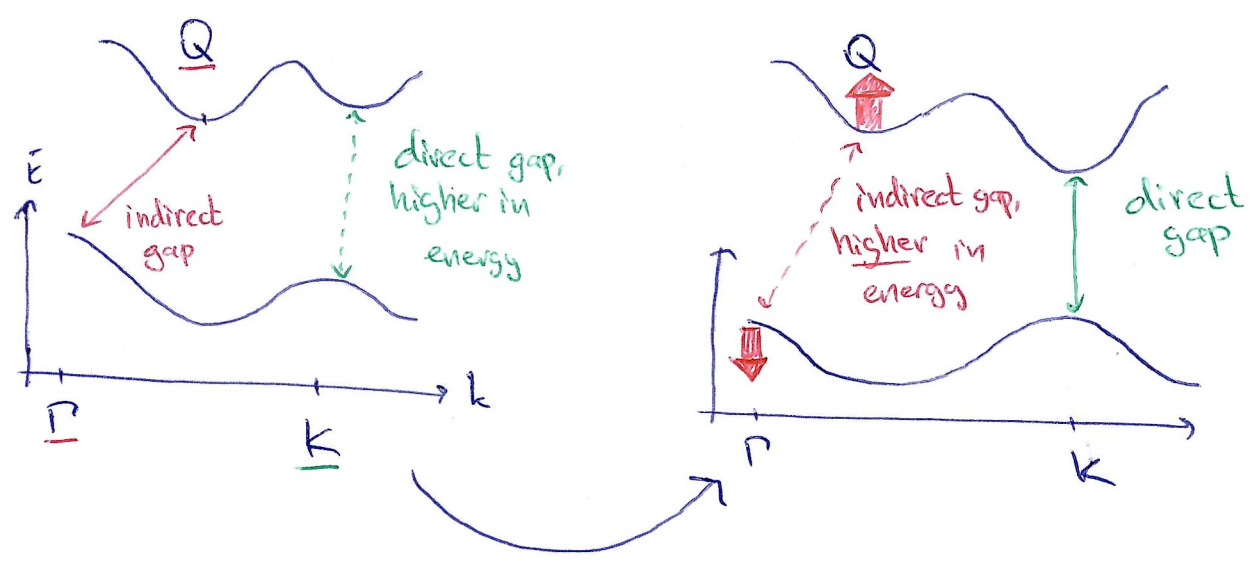 Q
E
indirect
gap
direct gap,
higher in
energy
k
Γ
K
Q
indirect gap,
higher in
energy
direct
gap
Γ
K